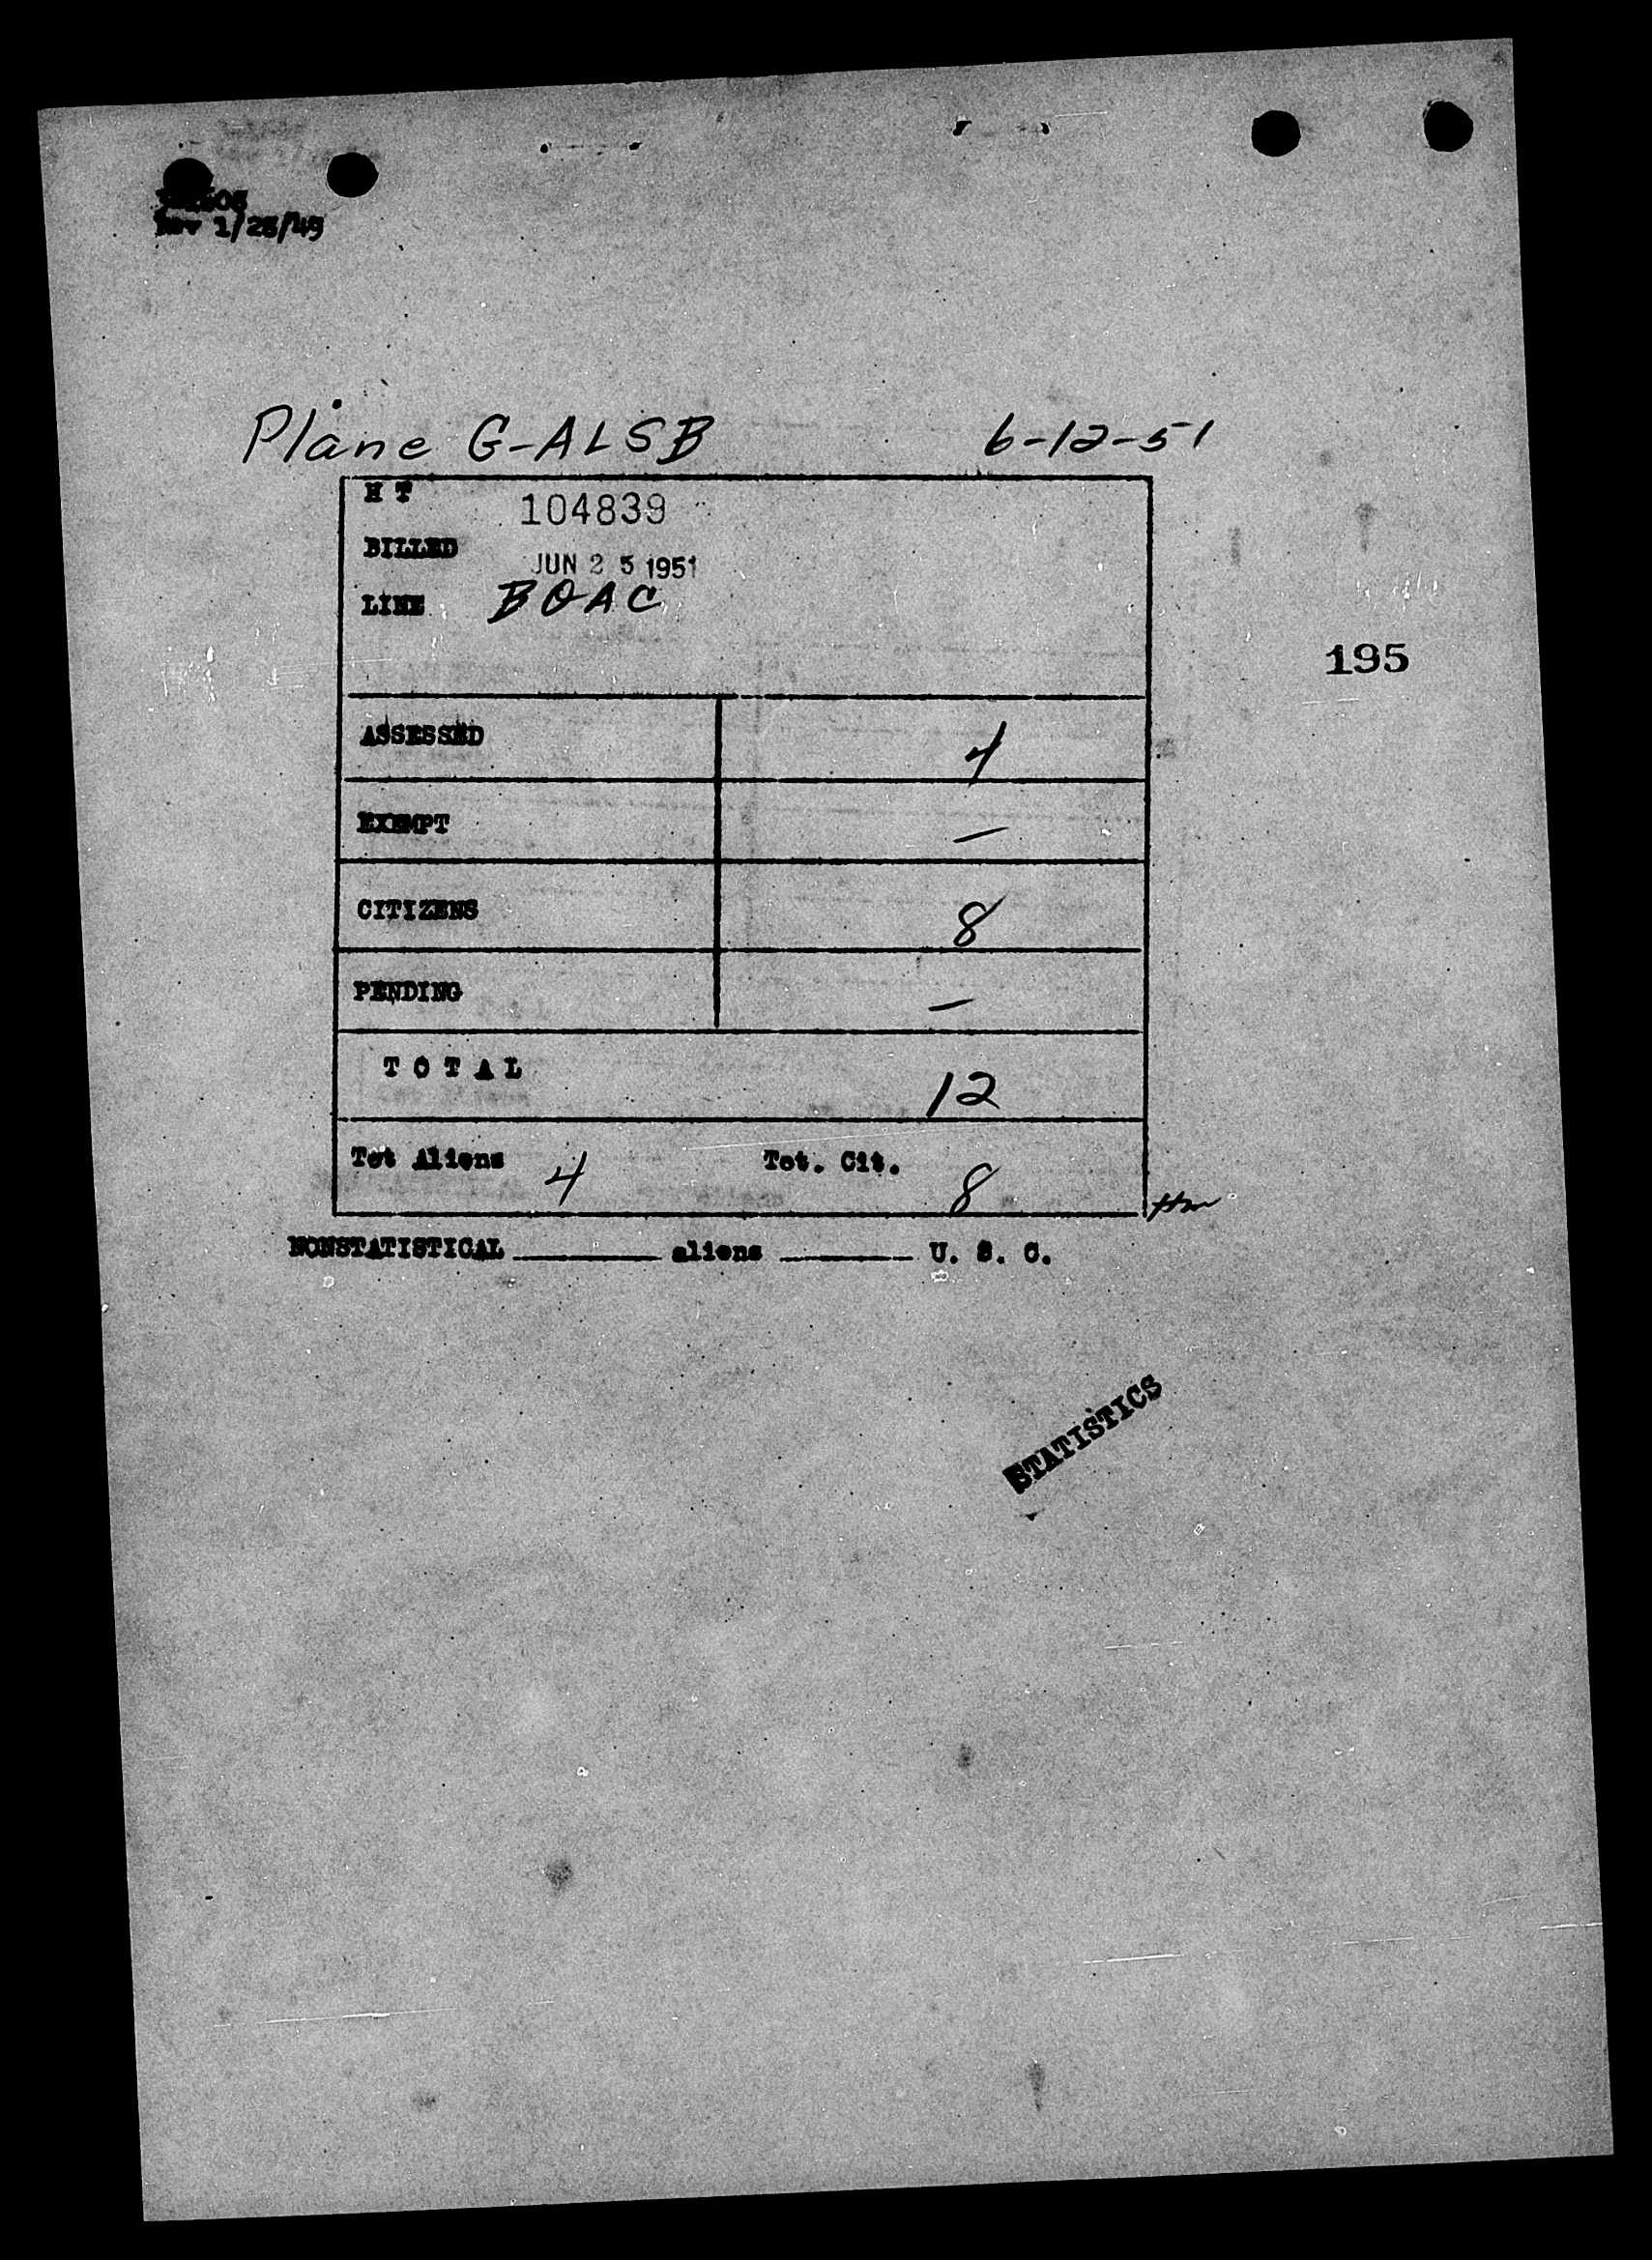 Rev 1/28/49
Plane G-ALSB 6-12-51
H T 104839
BILLED JUN 25 1951
LINE BOAC
195
ASSESSED 4
EXEMPT —
CITIZENS 8
PENDING —
TOTAL 12
Tot Aliens 4 Tot. Cit. 8
NONSTATISTICAL ________ aliens ________ U. S. C.
STATISTICS